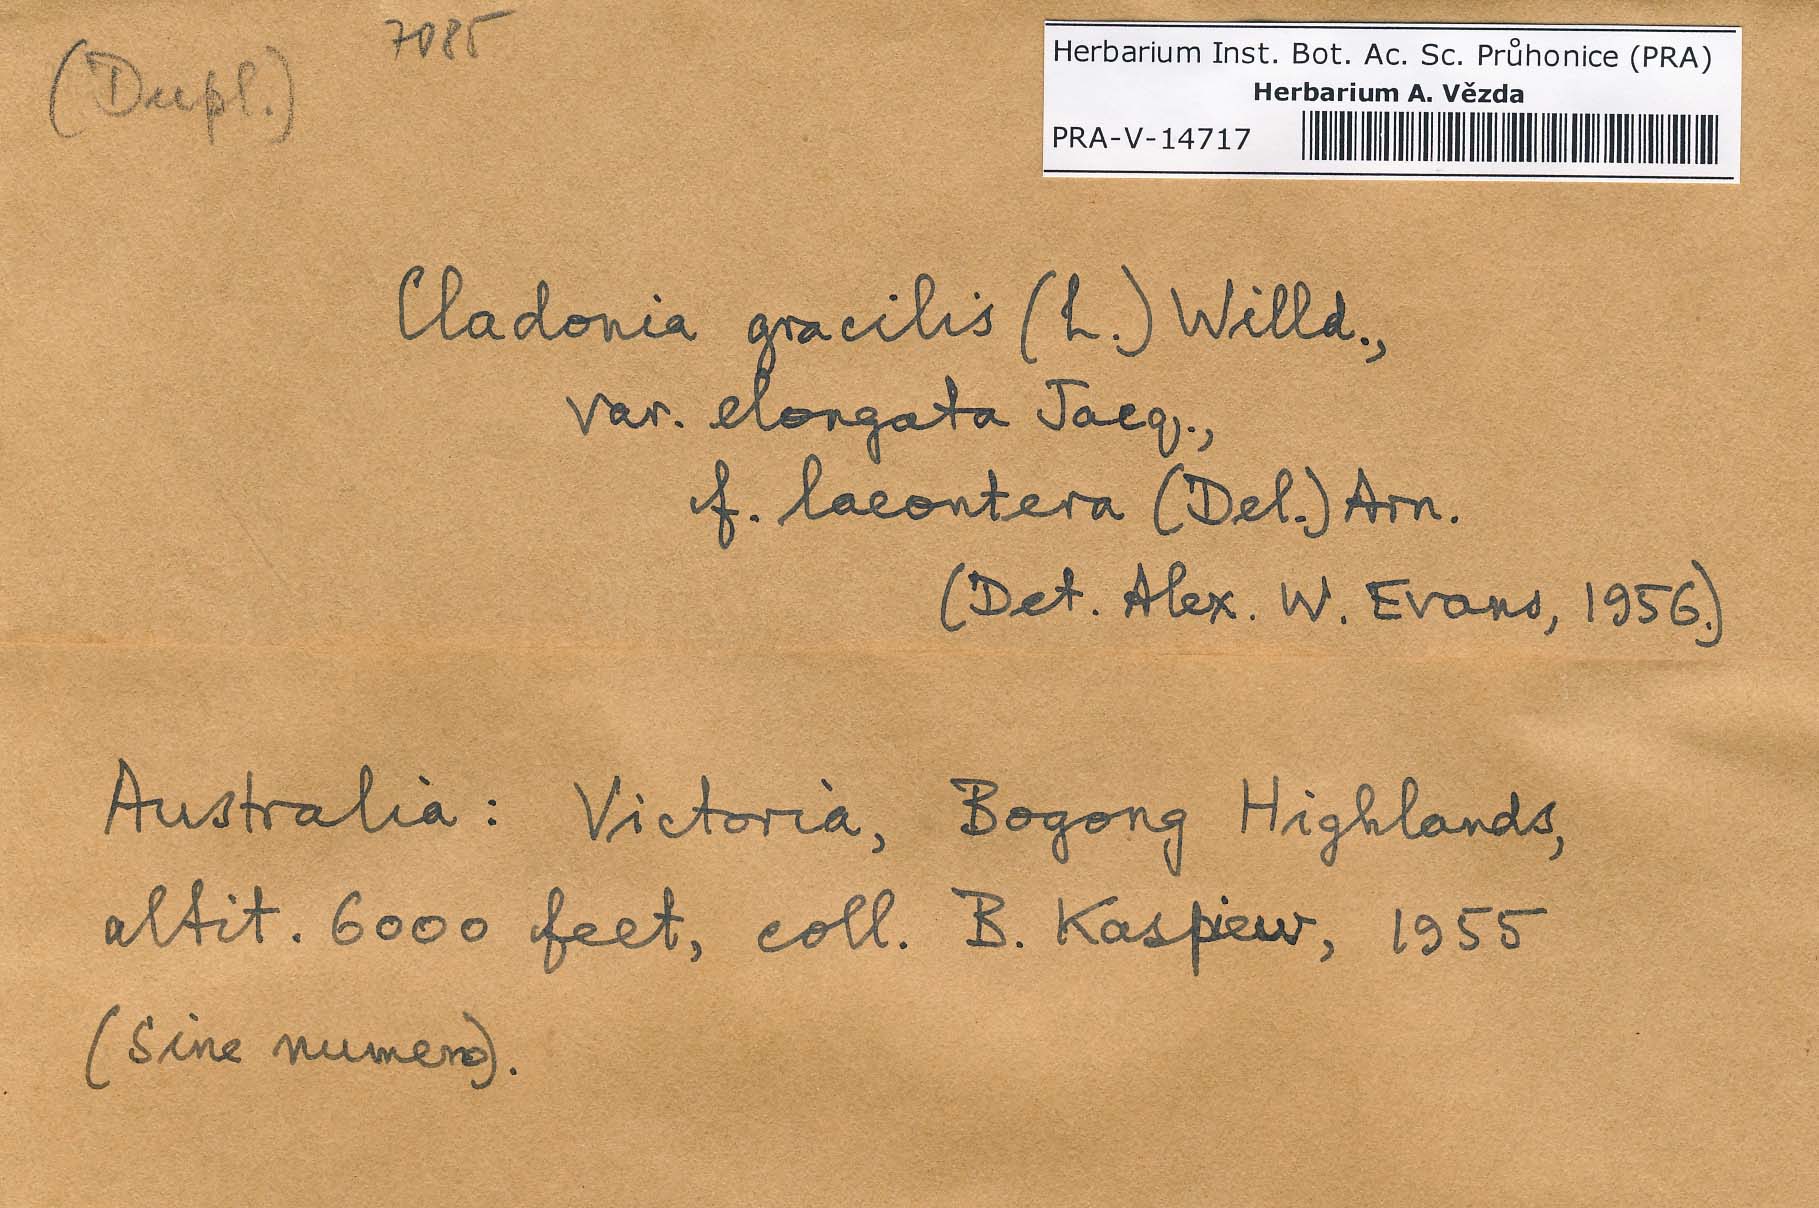 (Dupl.)
7085
Herbarium Inst. Bot. Ac. Sc. Průhonice (PRA)
Herbarium A. Vězda
PRA-V-14717
Cladonia gracilis (L.) Willd.,
var. elongata Jacq.,
f. laontera (Del.) Arn.
(Det. Alex. W. Evans, 1956.)
Australia: Victoria, Bogong Highlands,
altit. 6000 feet, coll. B. Kaspiew, 1955
(Sine numero).